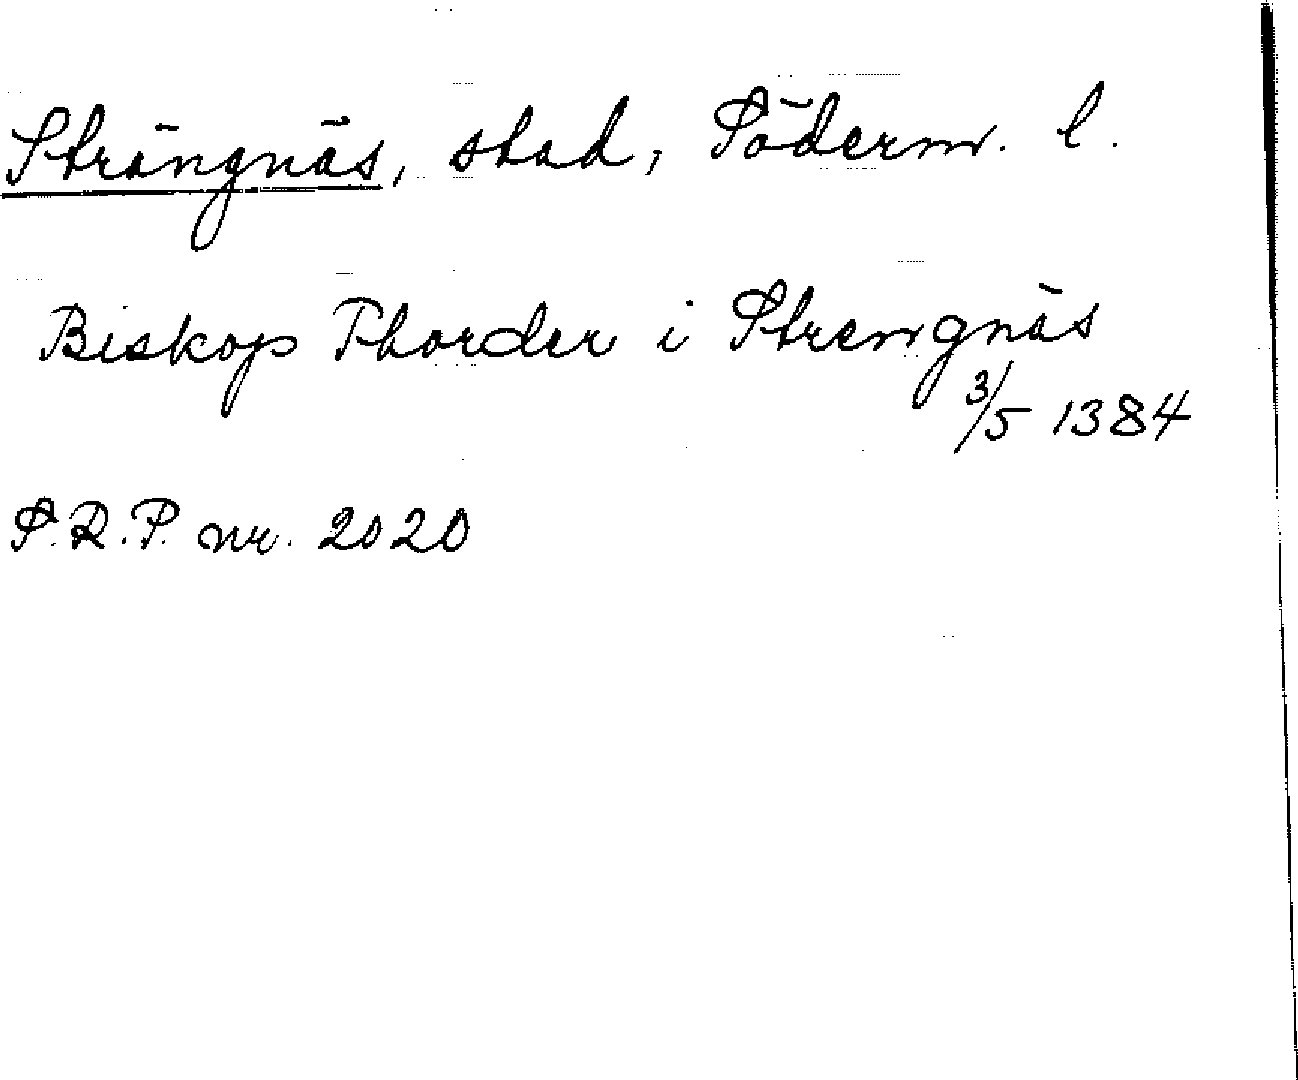 Strängnäs, stad, Söderm. l.
Biskop Thorder i Strengnäs
3/5 1384
S.R.P. nr. 2020